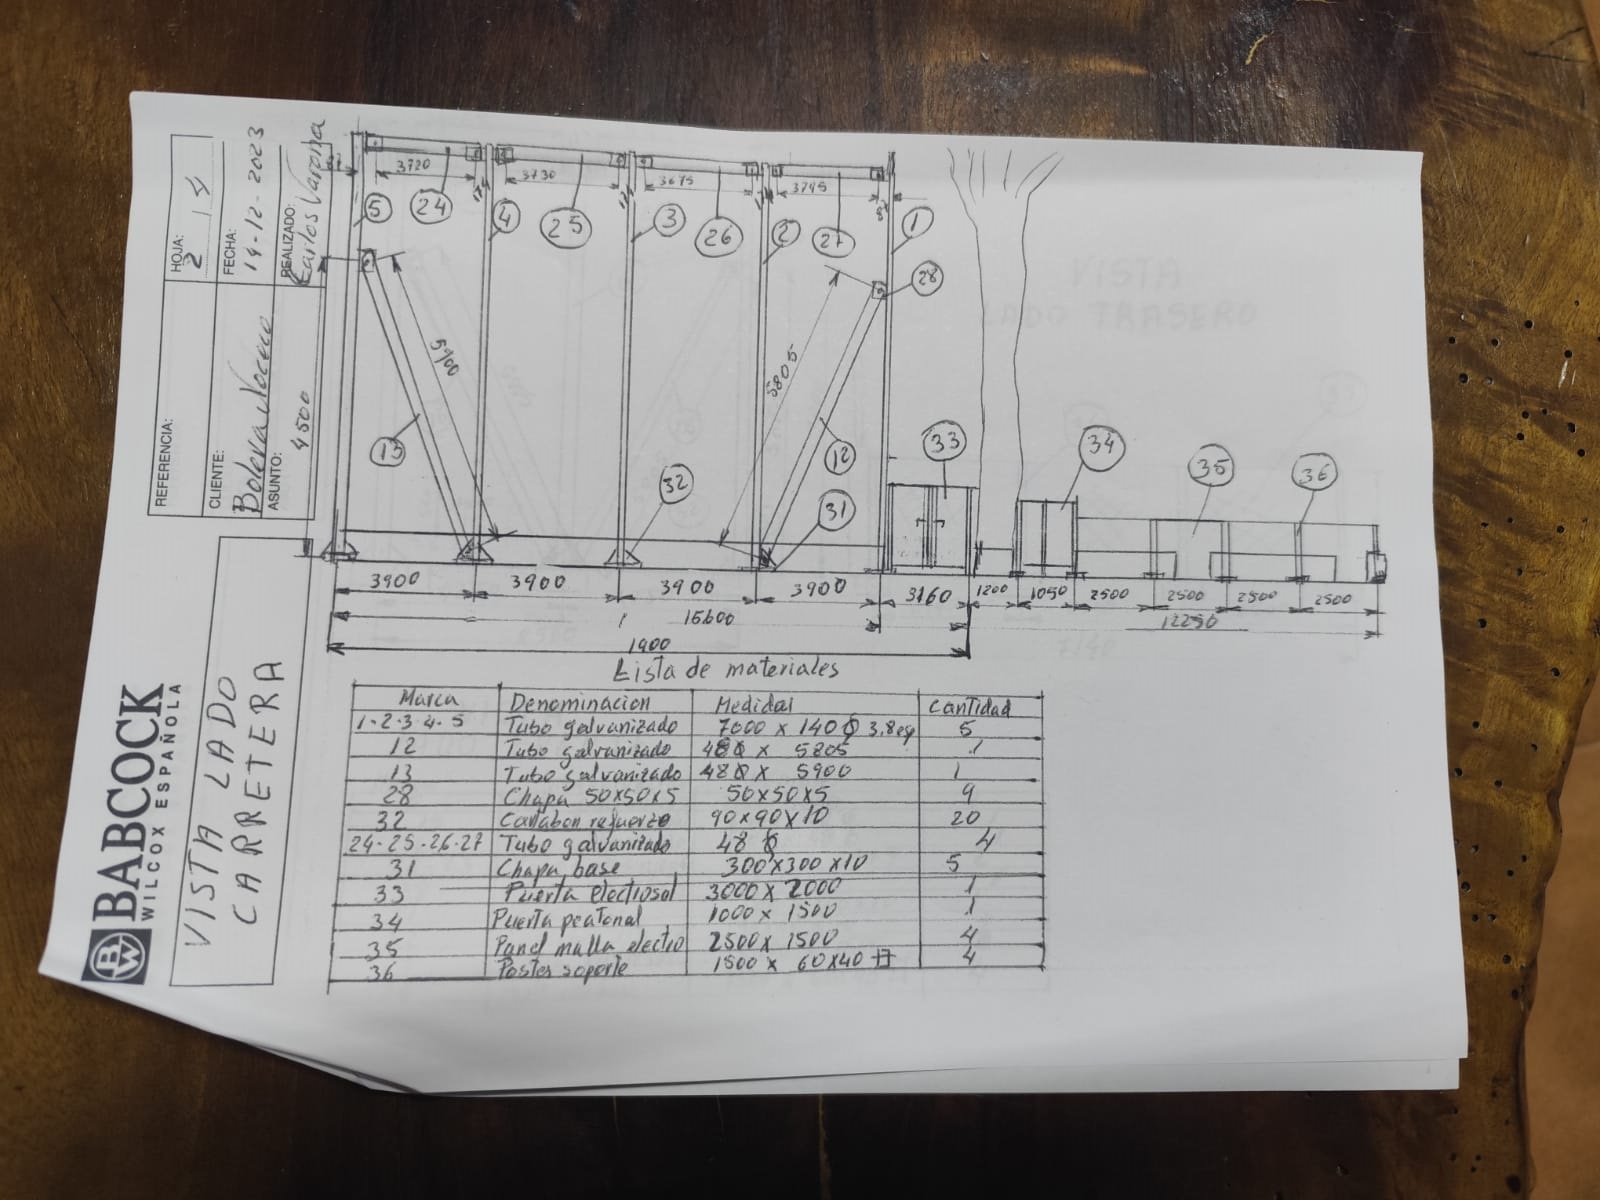 BABCOCK
WILCOX ESPAÑOLA
BW
VISTA LADO
CARRETERA
REFERENCIA:
HOJA:
2 4
CLIENTE:
FECHA:
14-12-2023
ASUNTO:
REALIZADO:
Carlos Varona
4500
3720
3730
3675
3745
5
24
4
25
3
26
2
27
1
28
5900
5805
13
12
32
31
33
34
35
36
3900
3900
3900
3900
3160
1200
1050
2500
2500
2500
2500
15600
12250
1900
Lista de materiales
Marca Denominacion Medidas Cantidad
1-2-3-4-5 Tubo galvanizado 7000 x 140 Φ 3.8 esp 5
12 Tubo galvanizado 48 Φ x 5805 1
13 Tubo galvanizado 48 Φ x 5900 1
28 Chapa 50x50x5 50x50x5 9
32 Cartabon refuerzo 90x90x10 20
24-25-26-27 Tubo galvanizado 48 Φ 4
31 Chapa base 300x300x10 5
33 Puerta electrosol 3000 x 2000 1
34 Puerta peatonal 1000 x 1500 1
35 Panel malla electro 2500 x 1500 4
36 Postes soporte 1500 x 60x40 4
VISTA
LADO TRASERO